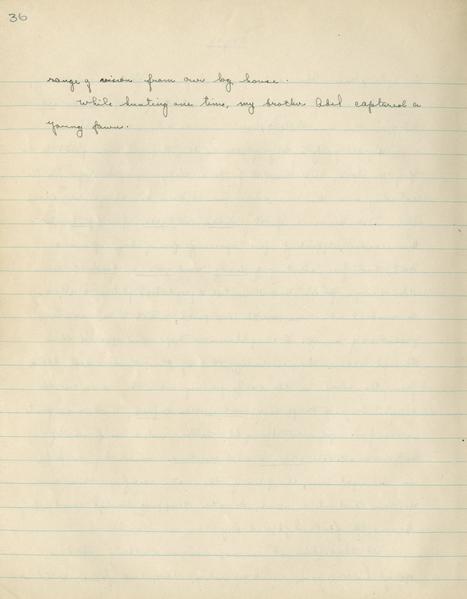 36
range of vision from our log house.
While hunting one time, my brother Abel captured a
young fawn.